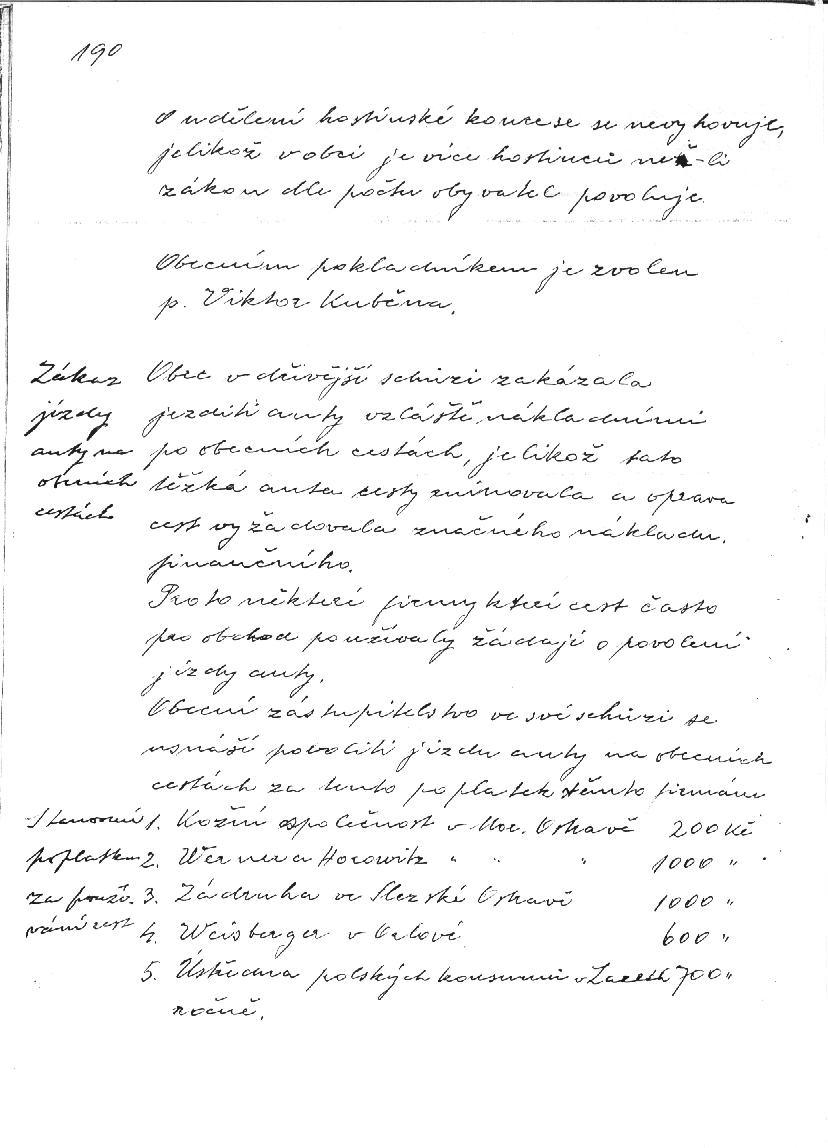 190
O udělení hostinské koncese se nevyhovuje,
jelikož v obci je více hostinců než-li
zákon dle počtu obyvatel povoluje.
Obecním pokladníkem je zvolen
p. Viktor Kubčna.
Zákaz
jízdy
auty na
obecních
cestách
Obec v dřívější schůzi zakázala
jezditi auty vzláště nákladními
po obecních cestách, jelikož tato
těžká auta cesty zninovala a oprava
cest vyžadovala značného nákladu
finančního.
Proto některé firmy kteří cest často
pro obchod používaly žádají o povolení
jízdy auty.
Obecní zástupitelstvo ve své schůzi se
usnáší povoliti jízdu auty na obecních
cestách za tento poplatek těmto firmám
Stanovení
poplatku
za použí-
vání cest
1. Kožní společnost v Mor. Ostravě 200 Kč
2. Werner a Horowitz " " " 1000 "
3. Zádruha ve Slezské Ostravě 1000 "
4. Weisberger v Orlové 600 "
5. Ústředna polských konsumů v Lazích 700 "
ročně.